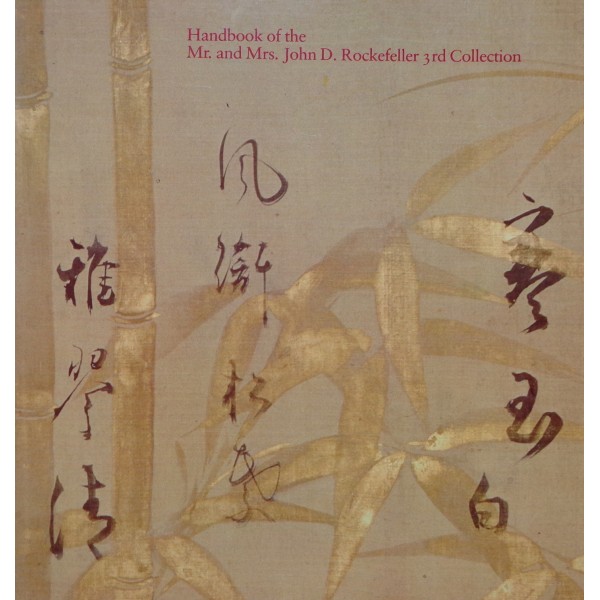 Handbook of the
Mr. and Mrs. John D. Rockefeller 3rd Collection
寒玉白
風 松
雅琴清